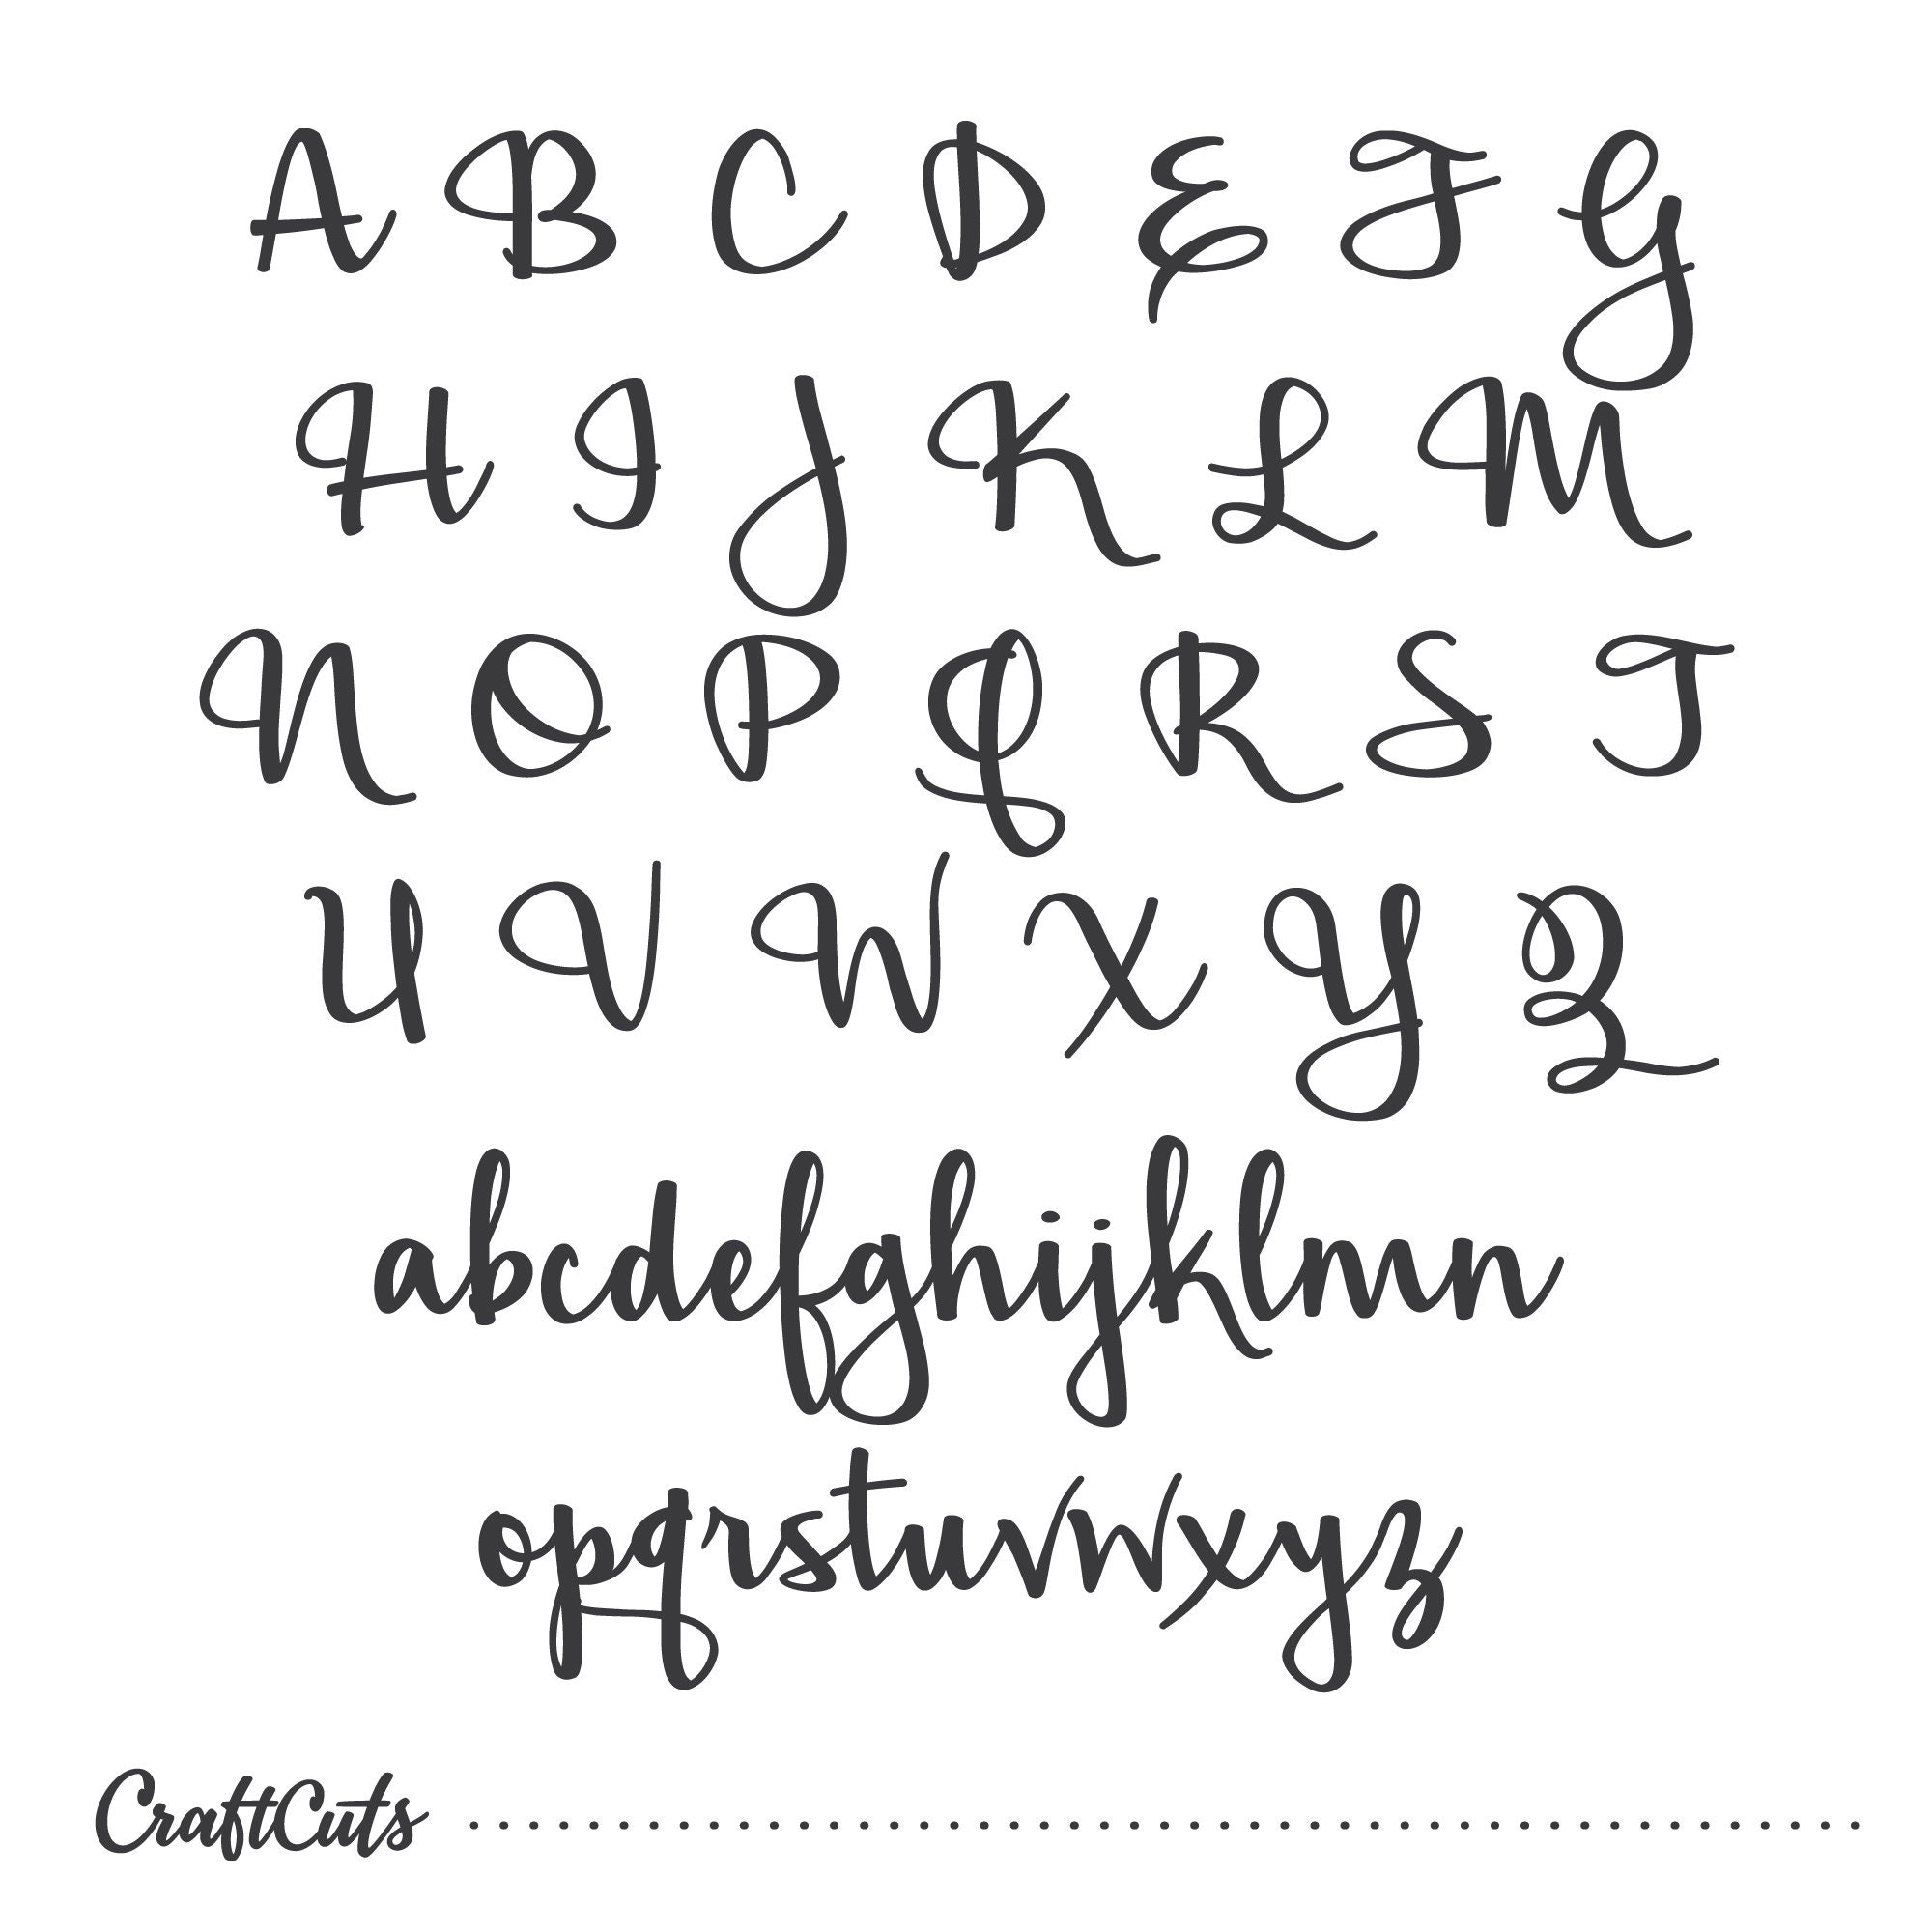 A B C D E F G
H I J K L M
N O P Q R S T
U V W X Y Z
abcdefghijklmn
opqrstuvwxyz
CraftCuts